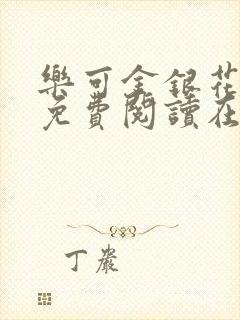 樂可金銀花
免費閱讀在
丁嚴